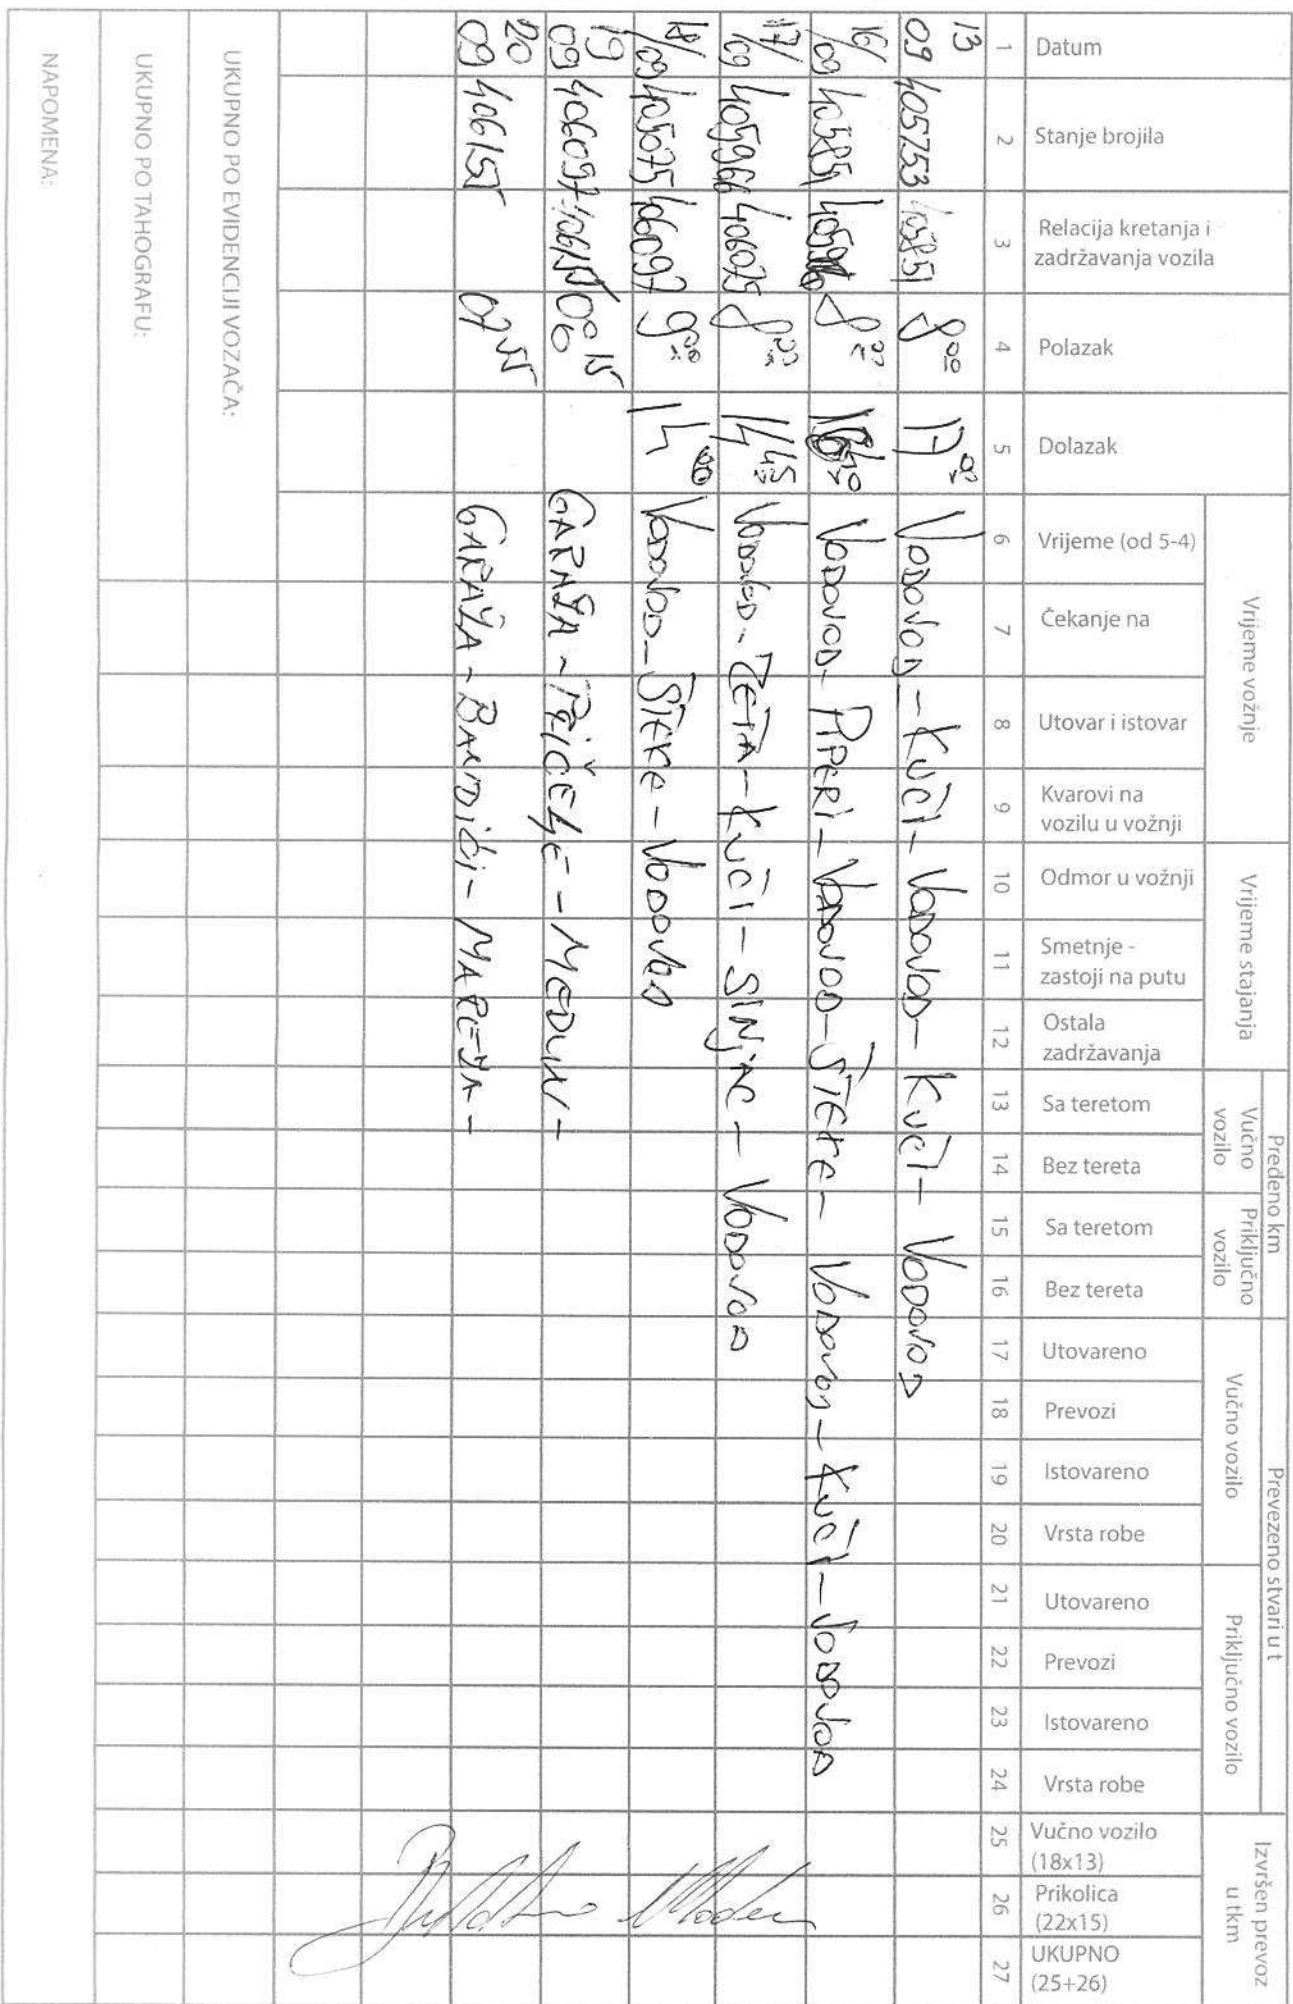 Vrijeme vožnje
Vrijeme stajanja
Pređeno km
Vučno vozilo
Priključno vozilo
Prevezeno stvari u t
Vučno vozilo
Priključno vozilo
Izvršen prevoz u tkm
Datum
Stanje brojila
Relacija kretanja i zadržavanja vozila
Polazak
Dolazak
Vrijeme (od 5-4)
Čekanje na
Utovar i istovar
Kvarovi na vozilu u vožnji
Odmor u vožnji
Smetnje - zastoji na putu
Ostala zadržavanja
Sa teretom
Bez tereta
Sa teretom
Bez tereta
Utovareno
Prevozi
Istovareno
Vrsta robe
Utovareno
Prevozi
Istovareno
Vrsta robe
Vučno vozilo (18x13)
Prikolica (22x15)
UKUPNO (25+26)
1 2 3 4 5 6 7 8 9 10 11 12 13 14 15 16 17 18 19 20 21 22 23 24 25 26 27
13 09 405753 405851 8 00 17 00 VODOVOD - KUČI - VODOVOD - KUČI - VODOVOD
16/09 405851 8 00 VODOVOD - PIPERI - VODOVOD - ŠTEKE - VODOVOD - KUČI - VODOVOD
17/09 405966 406075 8 00 14 45 VODOVOD - ZETA - KUČI - SINJAC - VODOVOD
18/09 405075 406097 9 00 14 00 VODOVOD - ŠTEKE - VODOVOD
19 09 406097 06 15 GARAŽA - - MEDUN -
20 09 07 GARAŽA - - MAREZA -
UKUPNO PO EVIDENCIJI VOZAČA:
UKUPNO PO TAHOGRAFU:
NAPOMENA: